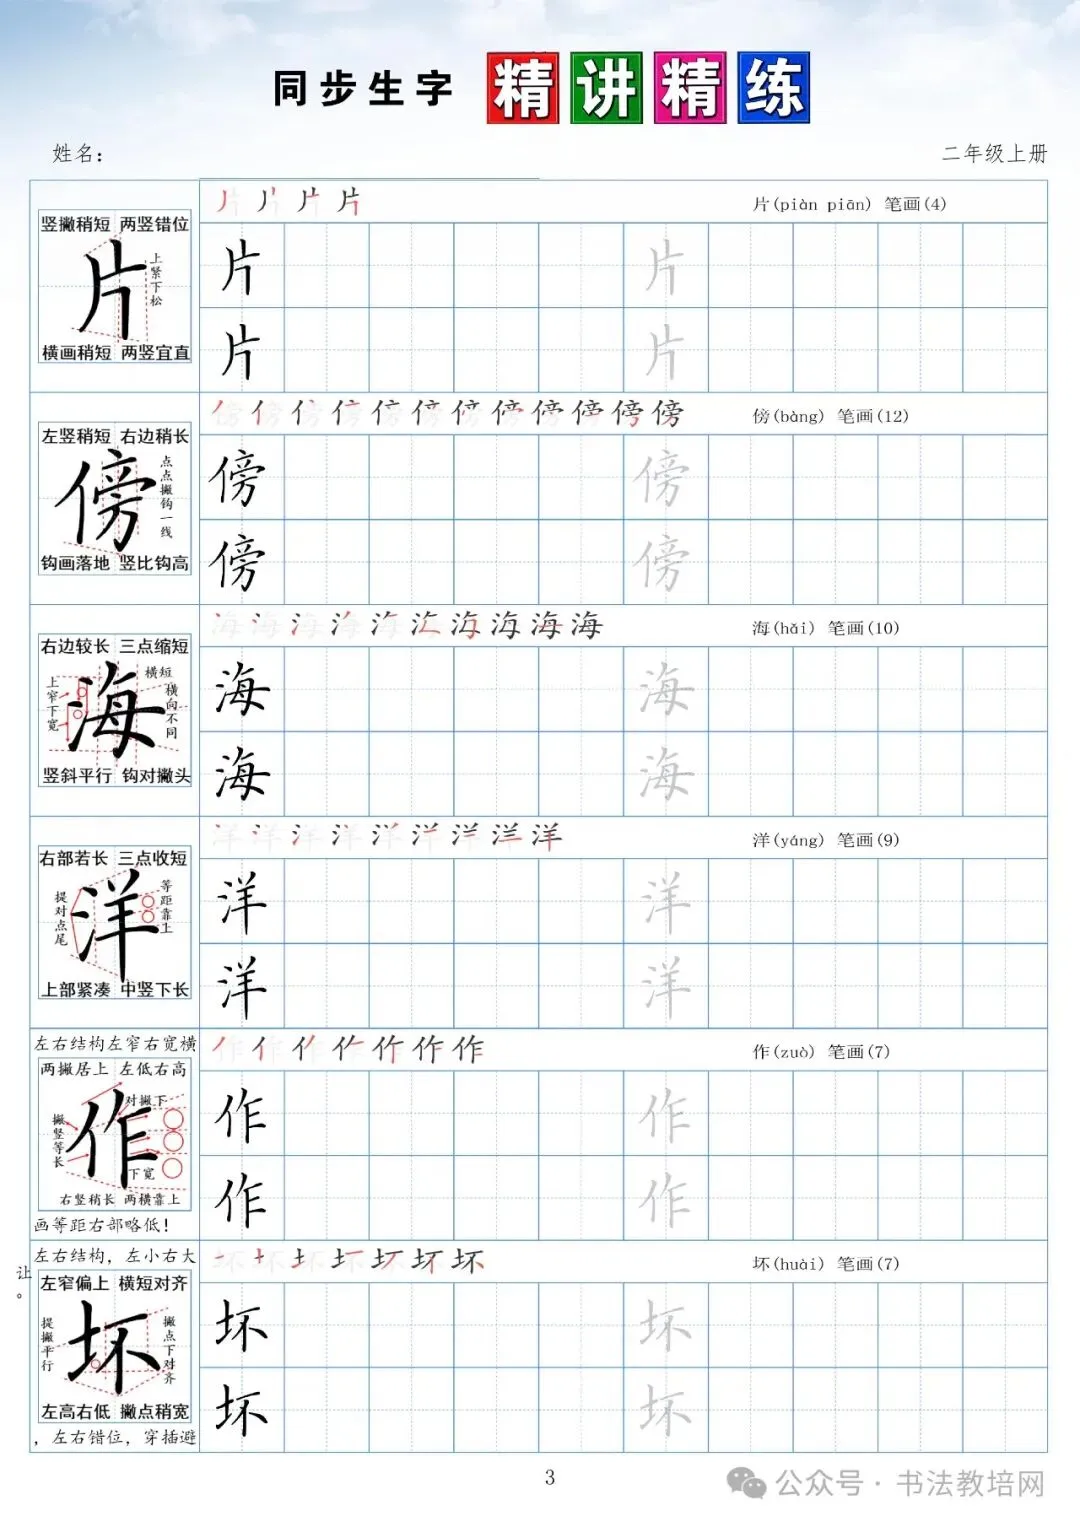 同步生字 精讲精练
姓名：
二年级上册
片 片 片 片
片(piàn piān) 笔画(4)
竖撇稍短 两竖错位
片
上紧下松
横画稍短 两竖宜直
片 片
片 片
傍 傍 傍 傍 傍 傍 傍 傍 傍 傍 傍 傍
傍(bàng) 笔画(12)
左竖稍短 右边稍长
傍
点点撇钩一线
钩画落地 竖比钩高
傍 傍
傍 傍
海 海 海 海 海 海 海 海 海 海
海(hǎi) 笔画(10)
右边较长 三点缩短
横短
上窄下宽
海
横向不同
竖斜平行 钩对撇头
海 海
海 海
洋 洋 洋 洋 洋 洋 洋 洋 洋
洋(yáng) 笔画(9)
右部若长 三点收短
提对点尾
洋
等距靠上
上部紧凑 中竖下长
洋 洋
洋 洋
左右结构左窄右宽横
作 作 作 作 作 作 作
作(zuò) 笔画(7)
两撇居上 左低右高
对撇下
撇竖等长
作
下宽
右竖稍长 两横靠上
画等距右部略低！
作 作
作 作
左右结构，左小右大
坏 坏 坏 坏 坏 坏 坏
坏(huài) 笔画(7)
让。
左窄偏上 横短对齐
提撇平行
坏
撇点下对齐
左高右低 撇点稍宽
，左右错位，穿插避
坏 坏
坏 坏
3
公众号·书法教培网